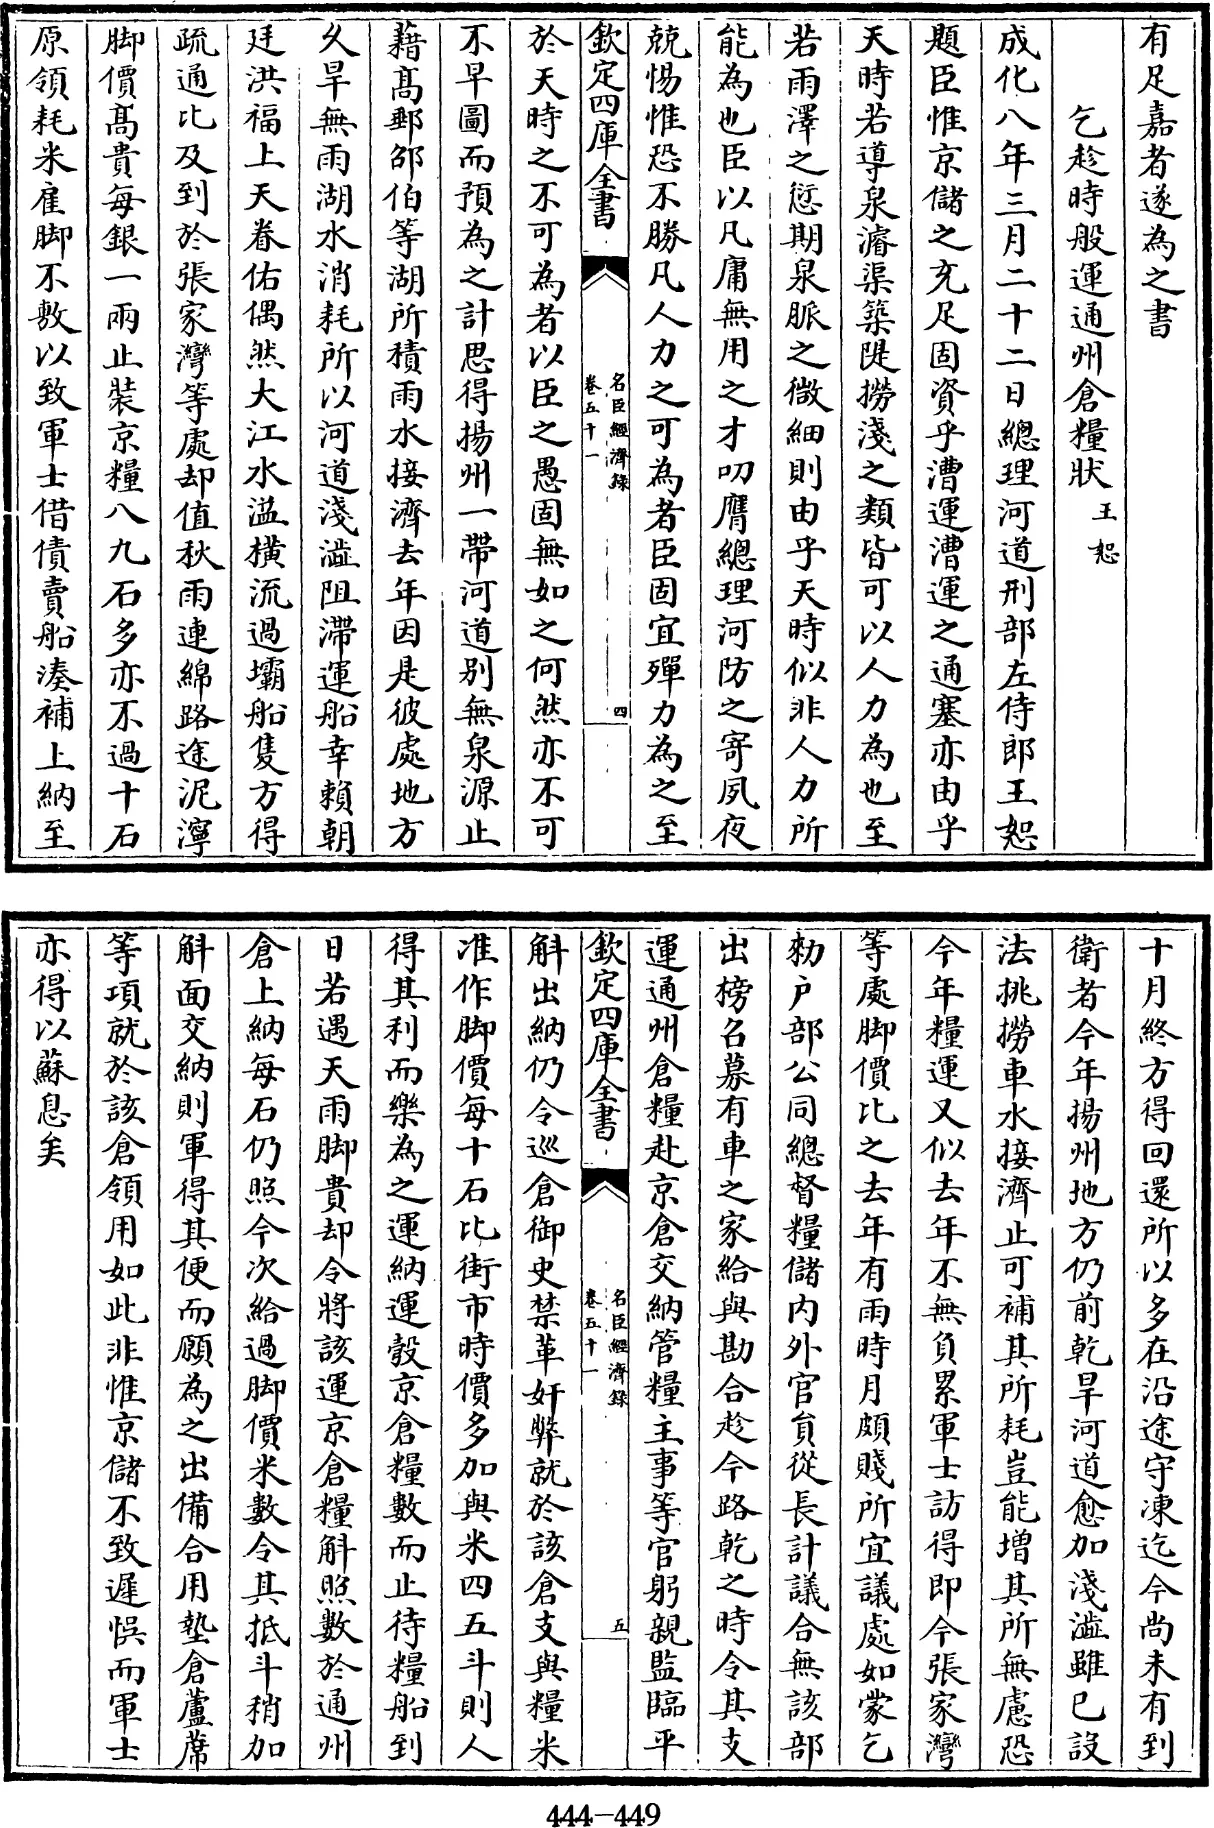 有足嘉者遂為之書
乞趁時般運通州倉糧狀 王恕
成化八年三月二十二日總理河道刑部左侍郎王恕
題臣惟京儲之充足固資乎漕運漕運之通塞亦由乎
天時若導泉濬渠築隄撈淺之類皆可以人力為也至
若雨澤之愆期泉脈之微細則由乎天時似非人力所
能為也臣以凡庸無用之才叨膺總理河防之寄夙夜
兢惕惟恐不勝凡人力之可為者臣固宜殫力為之至
欽定四庫全書 名臣經濟錄 卷五十一 四
於天時之不可為者以臣之愚固無如之何然亦不可
不早圖而預為之計思得揚州一帶河道別無泉源止
藉髙郵邵伯等湖所積雨水接濟去年因是彼處地方
久旱無雨湖水消耗所以河道淺澁阻滯運船幸賴朝
廷洪福上天眷佑偶然大江水溢橫流過壩船隻方得
疏通比及到於張家灣等處却值秋雨連綿路途泥濘
脚價髙貴每銀一兩止裝京糧八九石多亦不過十石
原領耗米雇脚不敷以致軍士借債賣船湊補上納至
十月終方得回還所以多在沿途守凍迄今尚未有到
衛者今年揚州地方仍前乾旱河道愈加淺澁雖已設
法挑撈車水接濟止可補其所耗豈能增其所無慮恐
今年糧運又似去年不無負累軍士訪得即今張家灣
等處脚價比之去年有雨時月頗賤所宜議處如蒙乞
勅户部公同總督糧儲內外官員從長計議合無該部
出榜名募有車之家給與勘合趁今路乾之時令其支
運通州倉糧赴京倉交納管糧主事等官躬親監臨平
欽定四庫全書 名臣經濟錄 卷五十一 五
斛出納仍令巡倉御史禁革奸弊就於該倉支與糧米
准作脚價每十石比街市時價多加與米四五斗則人
得其利而樂為之運納運彀京倉糧數而止待糧船到
日若遇天雨脚貴却令將該運京倉糧斛照數於通州
倉上納每石仍照今次給過脚價米數令其抵斗稍加
斛面交納則軍得其便而願為之出備合用墊倉蘆蓆
等項就於該倉領用如此非惟京儲不致遲悞而軍士
亦得以蘇息矣
444-449